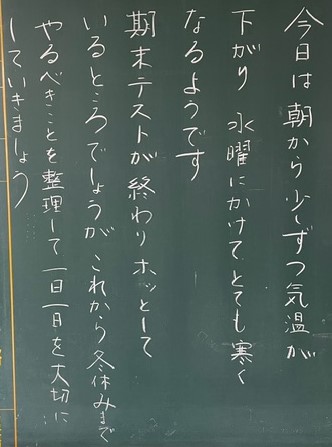 今日は朝から少しずつ気温が
下がり 水曜にかけてとても寒く
なるようです
期末テストが終わりホッとして
いるところでしょうが これから冬休みまで
やるべきことを整理して一日一日を大切に
していきましょう